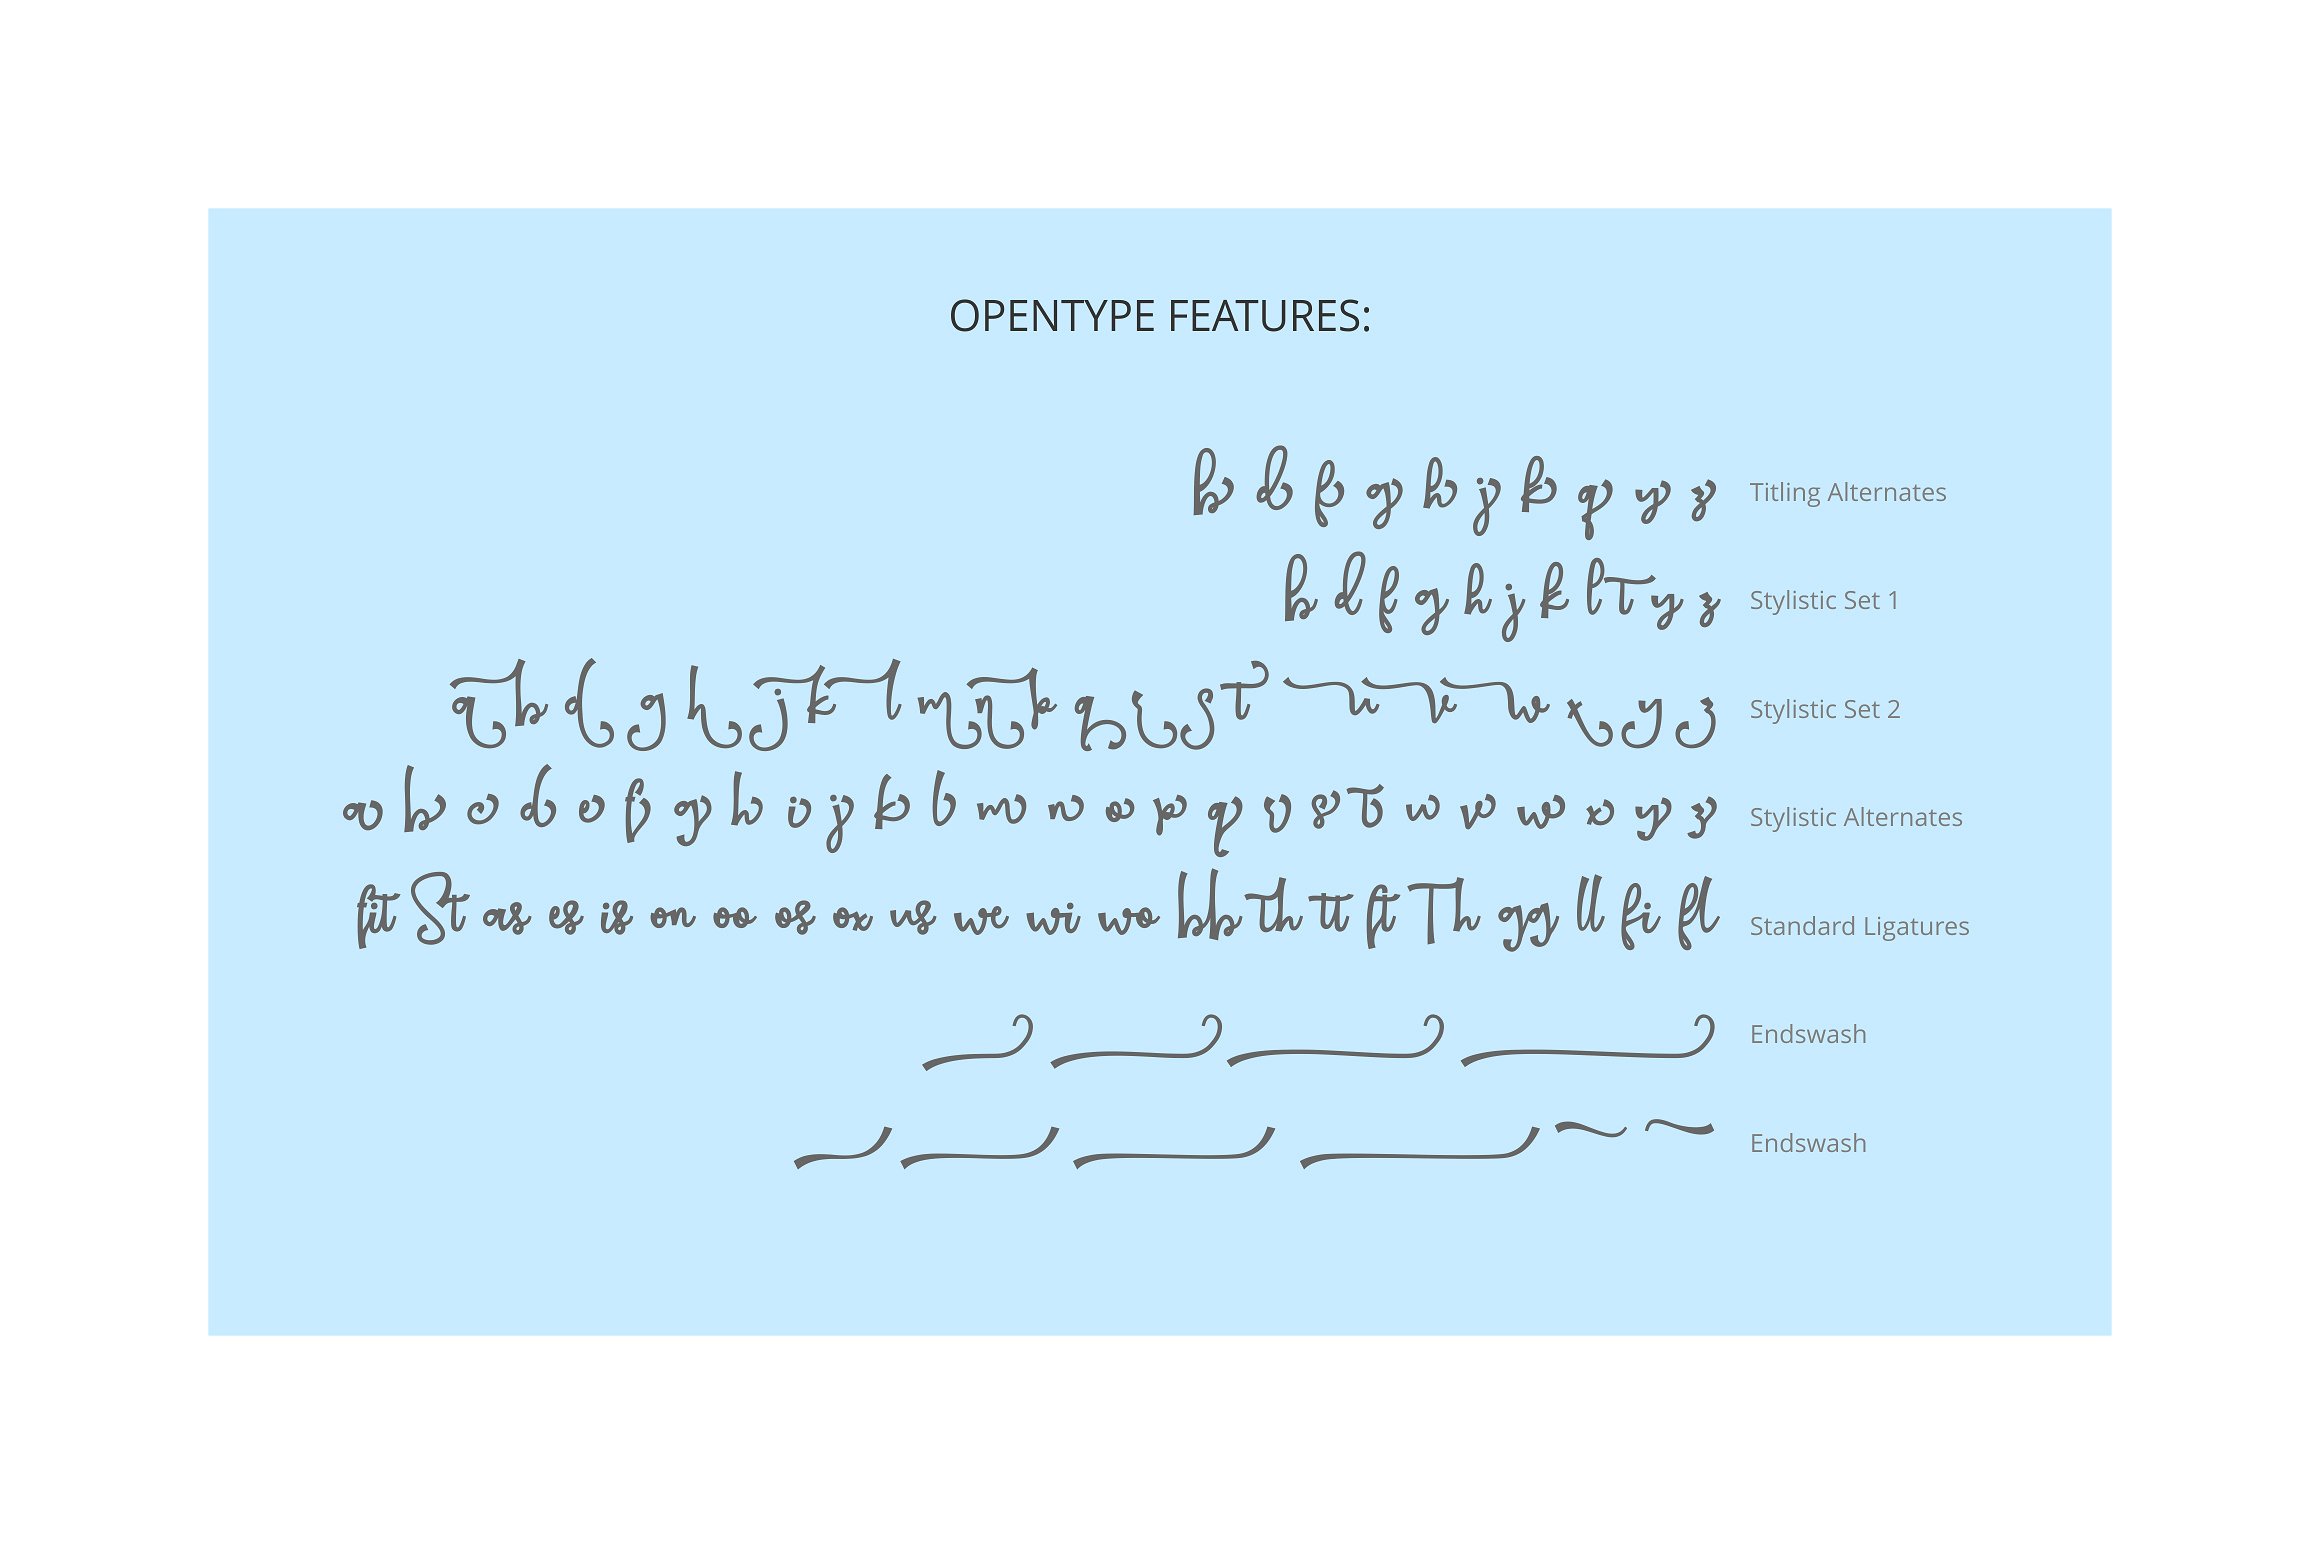 OPENTYPE FEATURES:
b d f g h j k q y z Titling Alternates
b d f g h j k l t y z Stylistic Set 1
a b d g h j k l m n p q r s t u v w x y z Stylistic Set 2
a b c d e f g h i j k l m n o p q r s t u v w x y z Stylistic Alternates
fit St as es is on oo os ox us we wi wo bb th tt ft Th gg ll fi fl Standard Ligatures
Endswash
Endswash